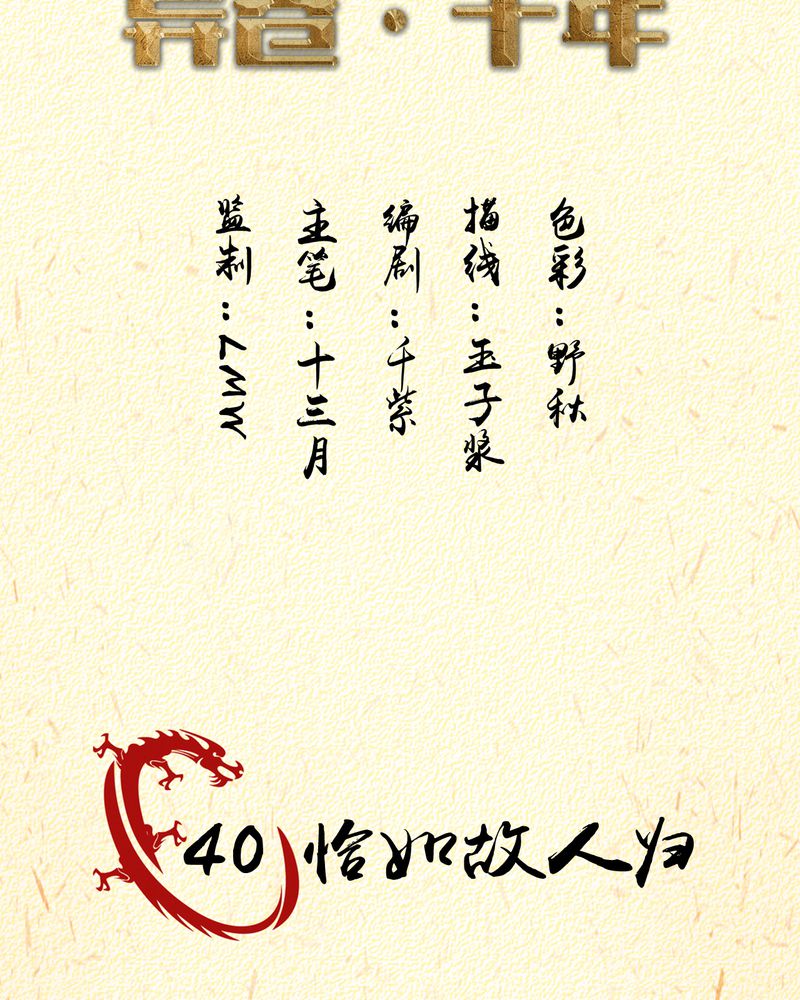 ·千年
色彩：野秋
描线：玉子浆
编剧：千紫
主笔：十三月
监制：MW7
40 恰如故人归